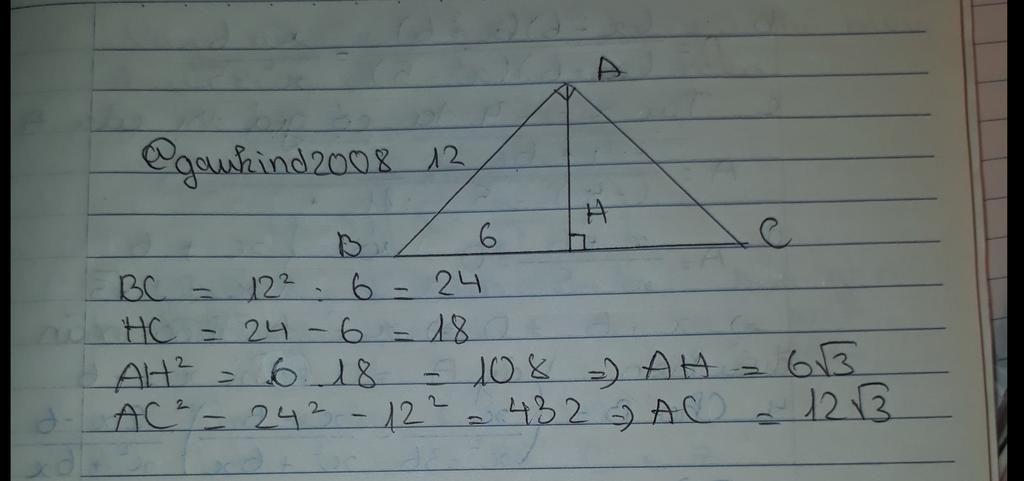 A
@gawkind2008 12
H
B 6 C
BC = 12² : 6 = 24
HC = 24 - 6 = 18
AH² = 6.18 = 108 => AH = 6√3
AC² = 24² - 12² = 432 => AC = 12√3